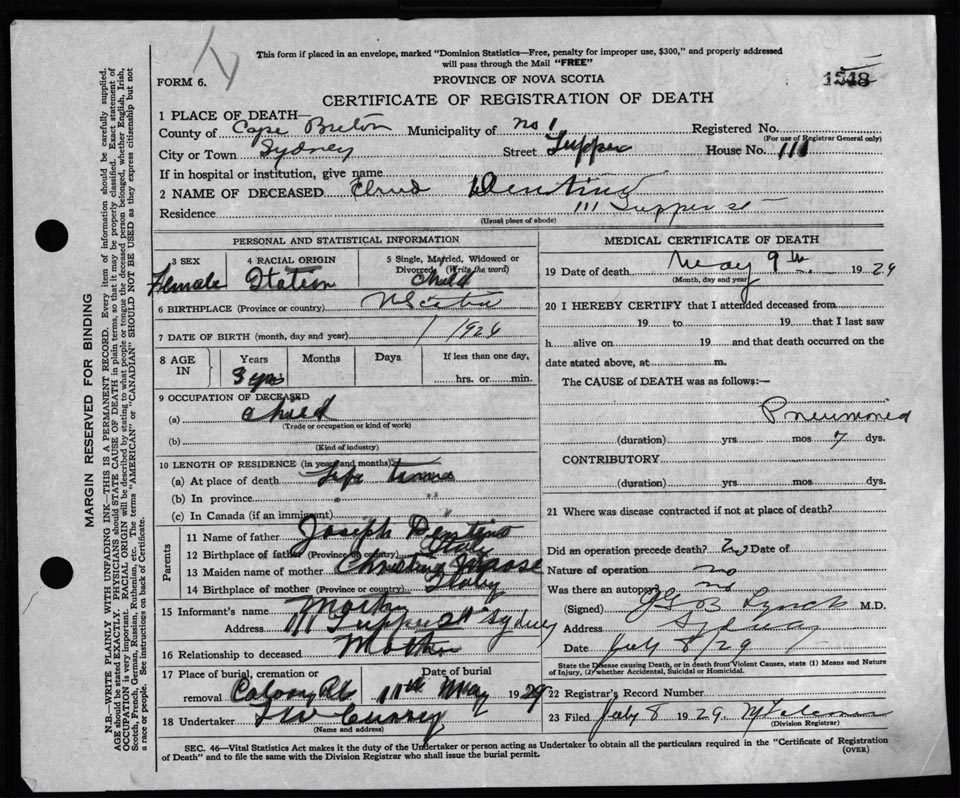 This form if placed in an envelope, marked "Dominion Statistics—Free, penalty for improper use, $300," and properly addressed
will pass through the Mail "FREE"
FORM 6.
PROVINCE OF NOVA SCOTIA
1548
CERTIFICATE OF REGISTRATION OF DEATH
1 PLACE OF DEATH—
County of Cape Breton Municipality of No 1 Registered No.
(For use of Registrar General only)
City or Town Sydney Street Tupper House No. 111
If in hospital or institution, give name
2 NAME OF DECEASED Dentino
Residence 111 Tupper St
(Usual place of abode)
PERSONAL AND STATISTICAL INFORMATION
3 SEX 4 RACIAL ORIGIN 5 Single, Married, Widowed or
Divorced (Write the word)
Female child
6 BIRTHPLACE (Province or country) N Scotia
7 DATE OF BIRTH (month, day and year) 1926
8 AGE IN Years Months Days If less than one day,
3 yrs hrs. or min.
9 OCCUPATION OF DECEASED
(a) child
(Trade or occupation or kind of work)
(b)
(Kind of industry)
10 LENGTH OF RESIDENCE (in years and months)
(a) At place of death Life time
(b) In province " "
(c) In Canada (if an immigrant)
Parents
11 Name of father Joseph Dentino
12 Birthplace of father (Province or country) Italy
13 Maiden name of mother Christina
14 Birthplace of mother (Province or country) Italy
15 Informant's name Mother
Address 111 Tupper St Sydney
16 Relationship to deceased Mother
17 Place of burial, cremation or Date of burial
removal 11th May 1929
18 Undertaker
(Name and address)
MEDICAL CERTIFICATE OF DEATH
19 Date of death May 9th 1929
(Month, day and year)
20 I HEREBY CERTIFY that I attended deceased from
19 to 19 that I last saw
h alive on 19 and that death occurred on the
date stated above, at m.
The CAUSE of DEATH was as follows:—
Pneumonia
(duration) yrs. mos 7 dys.
CONTRIBUTORY
(duration) yrs. mos. dys.
21 Where was disease contracted if not at place of death?
Did an operation precede death? no Date of
Nature of operation no
Was there an autopsy? no
(Signed) Lynch M.D.
Address Sydney
Date July 8/29
State the Disease causing Death, or in death from Violent Causes, state (1) Means and Nature
of Injury, (2) whether Accidental, Suicidal or Homicidal.
22 Registrar's Record Number
23 Filed July 8 1929
(Division Registrar)
SEC. 46—Vital Statistics Act makes it the duty of the Undertaker or person acting as Undertaker to obtain all the particulars required in the "Certificate of Registration
of Death" and to file the same with the Division Registrar who shall issue the burial permit.
(OVER)
MARGIN RESERVED FOR BINDING
N.B.—WRITE PLAINLY WITH UNFADING INK—THIS IS A PERMANENT RECORD. Every item of information should be carefully supplied.
AGE should be stated EXACTLY. PHYSICIANS should STATE CAUSE OF DEATH in plain terms, so that it may be properly classified. Exact statement of
OCCUPATION is very important. RACIAL ORIGIN will be described by stating to what people or tongue the deceased person belonged, whether English, Irish,
Scotch, French, German, Russian, Ruthenian, etc. The terms "AMERICAN" or "CANADIAN" SHOULD NOT BE USED as they express citizenship but not
a race or people. See instructions on back of Certificate.